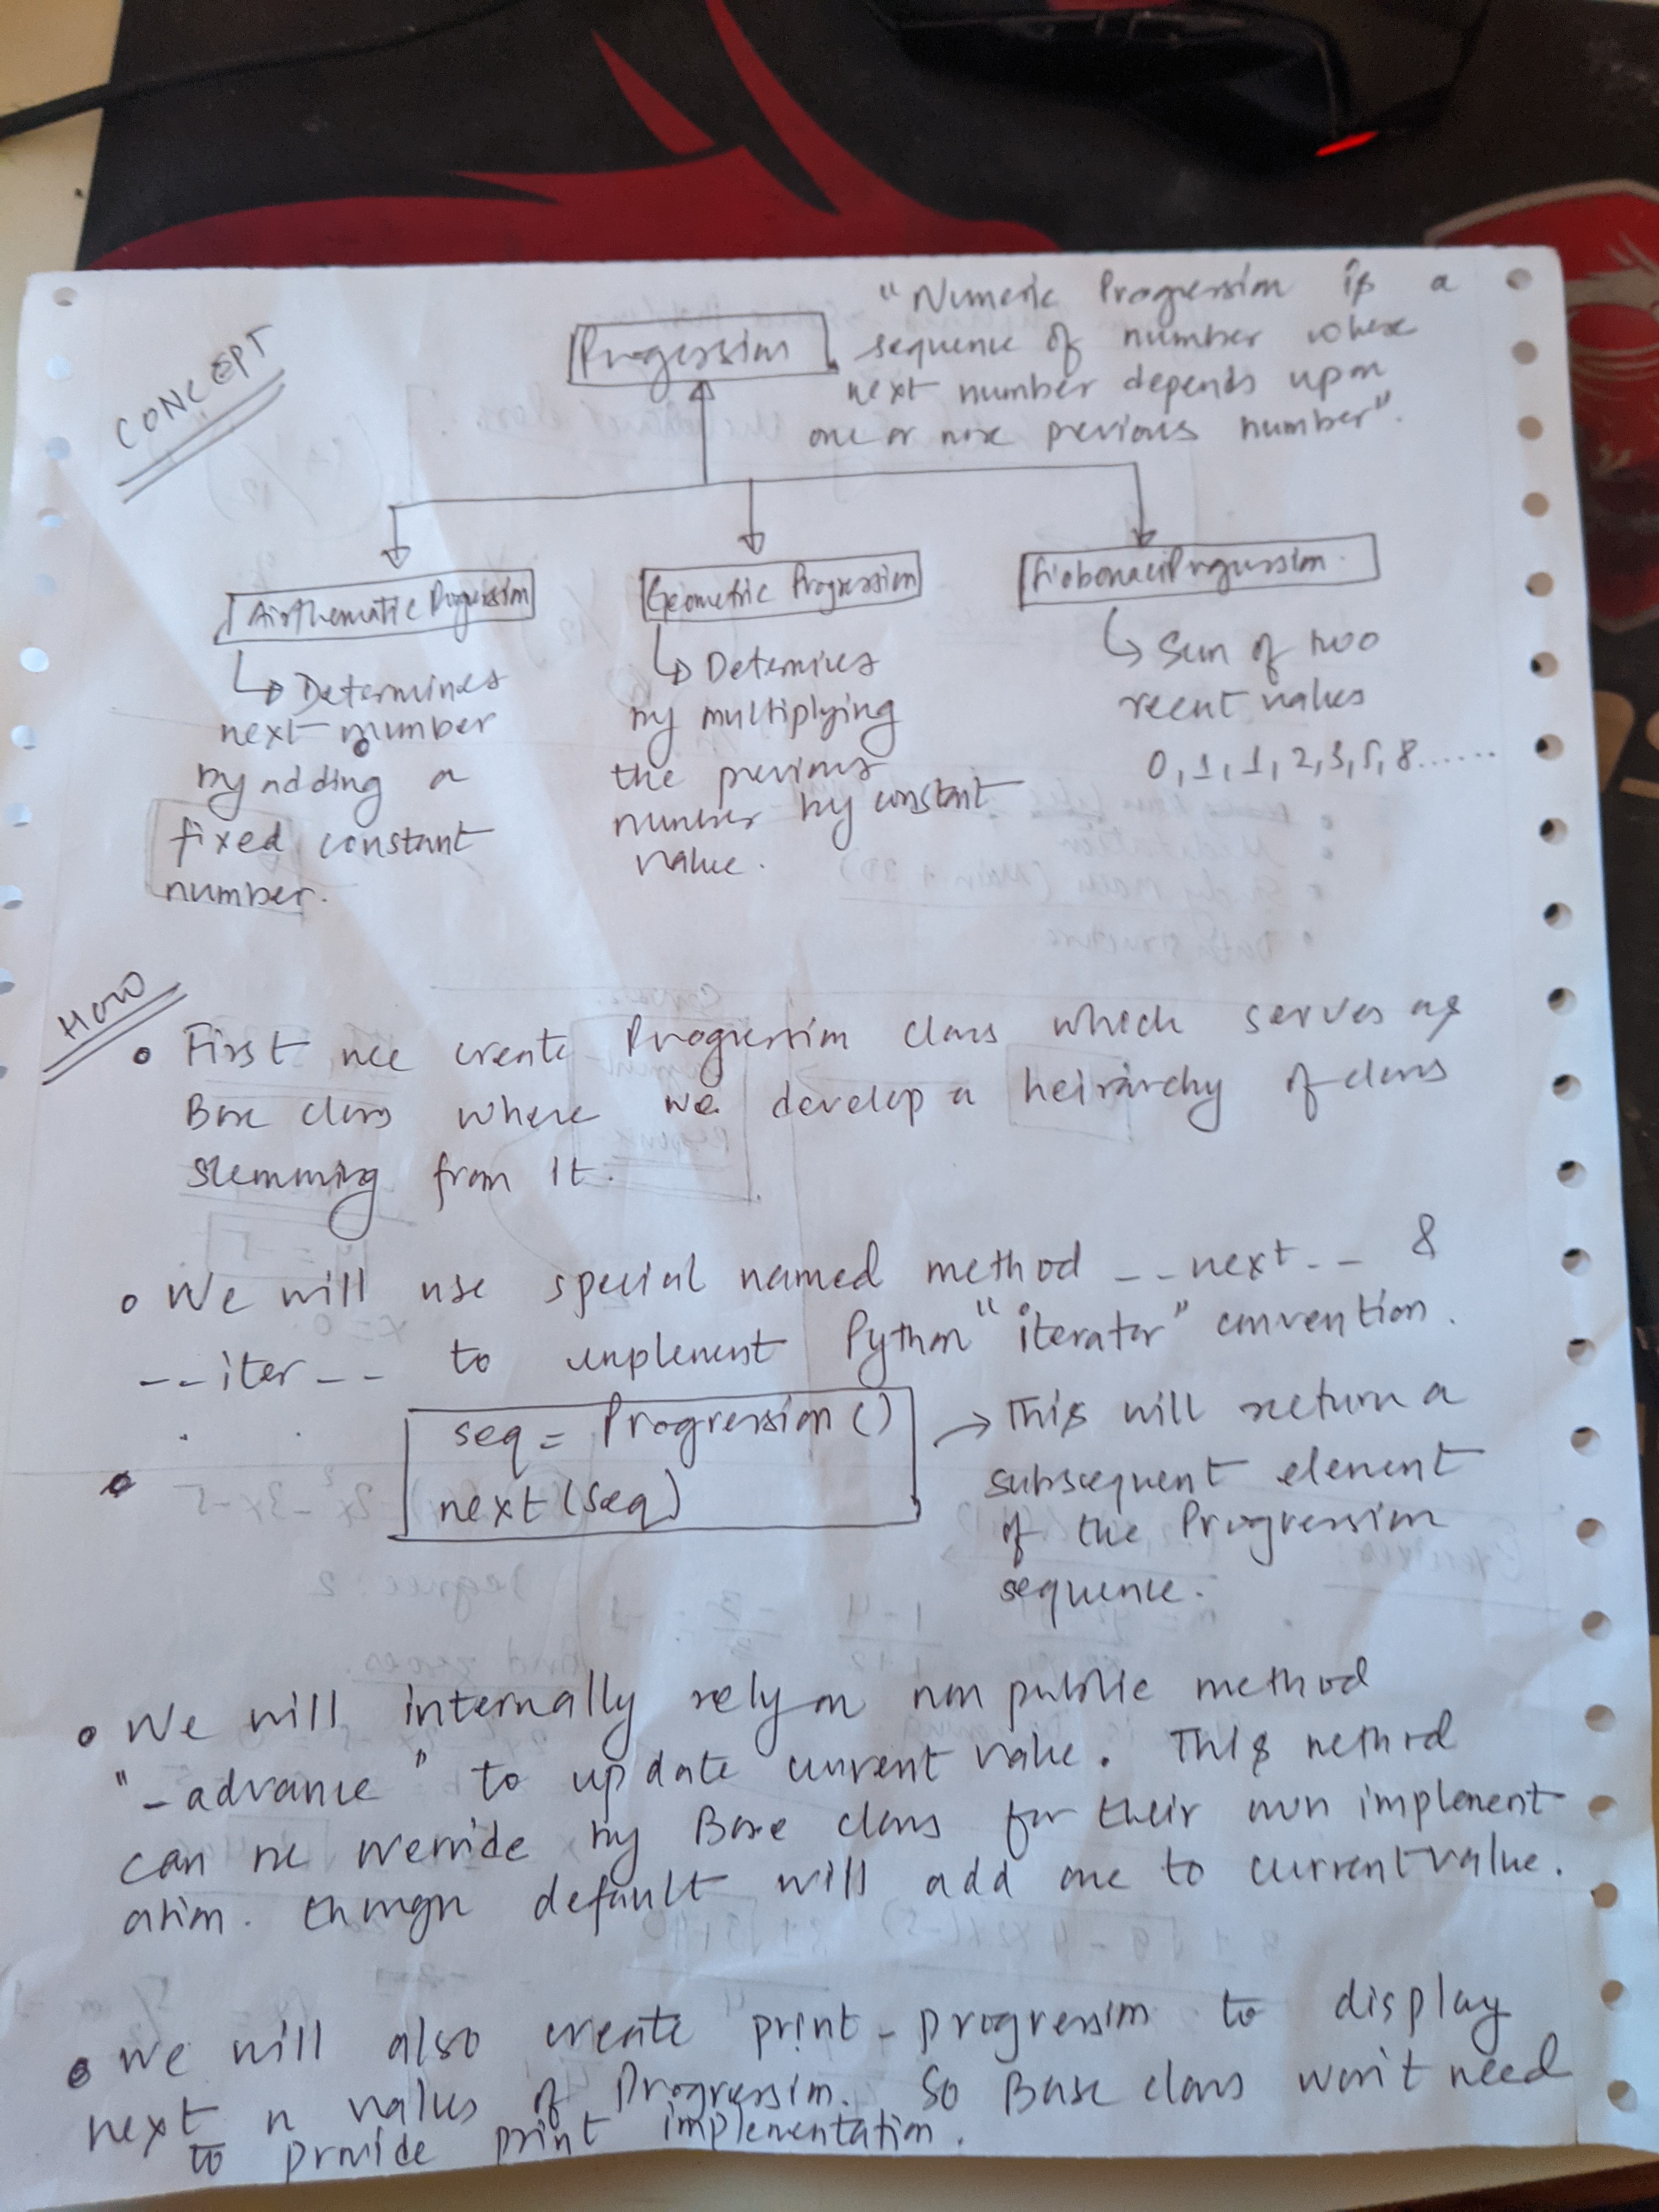 CONCEPT
Progression
"Numeric Progression is a
sequence of number where
next number depends upon
one or more previous number".
Airthematic Progression
Geometric Progression
FiobonaciProgression.
Determines
next number
by adding a
fixed constant
number.
Determines
by multiplying
the previous
number by constant
value.
Sum of two
recent values
0, 1, 1, 2, 3, 5, 8......
HOW
First we create Progression class which serves as
Base class where we develop a heirarchy of class
stemming from it.
We will use special named method __next__ &
__iter__ to implement Python "iterator" convention.
seq = Progression()
next(seq)
This will return a
subsequent element
of the Progression
sequence.
We will internally rely on non public method
"_advance" to update current value. This method
can be override by Base class for their own implement
ation. though default will add one to current value.
We will also create print_progression to display
next n values of Progression. So Base class won't need
to provide print implementation.